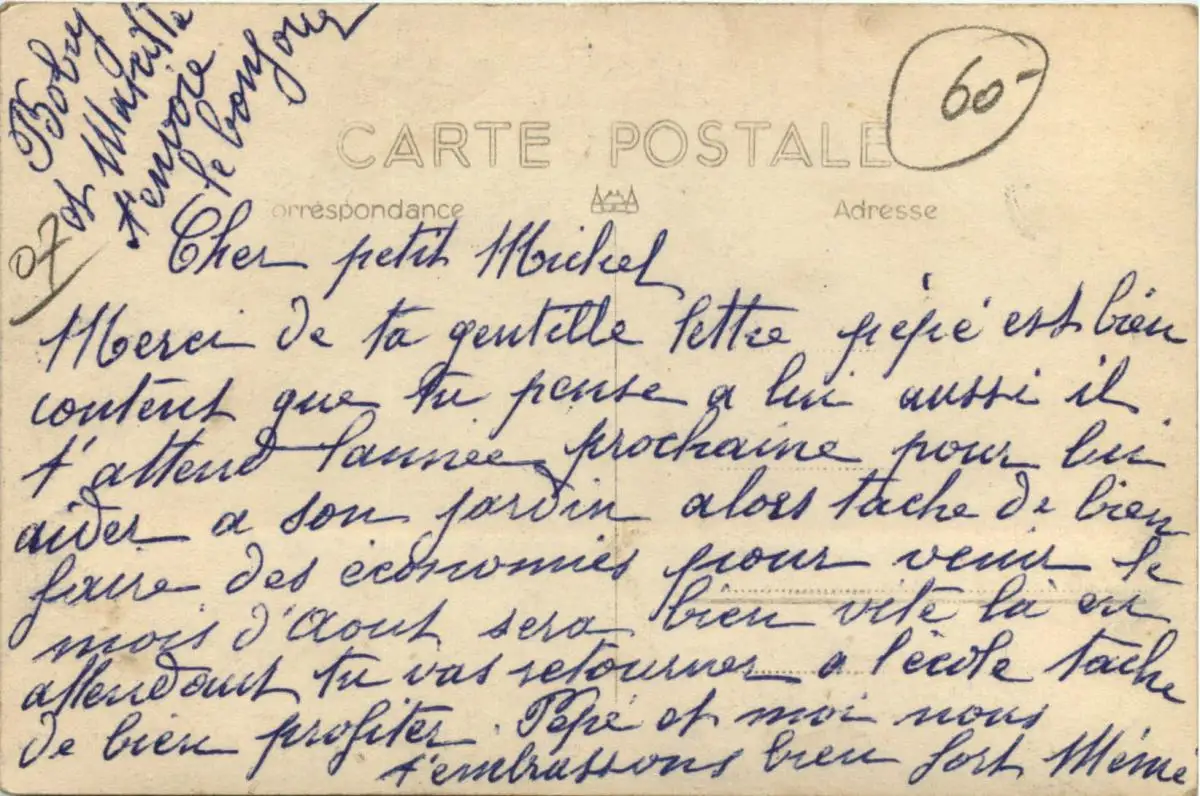 Boby
et Marcelle
t'envoie
le bonjour
60-
CARTE POSTALE
orrespondance
Adresse
07
Cher petit Michel
Merci de ta gentille lettre pépé est bien
content que tu pense a lui aussi il
t'attend l'année prochaine pour lui
aider a son jardin alors tache de bien
faire des économies pour venir le
mois d'Aout sera bien vite là en
attendant tu vas retourner a l'école tache
de bien profiter. Pépé et moi nous
t'embrassons bien fort Mémé